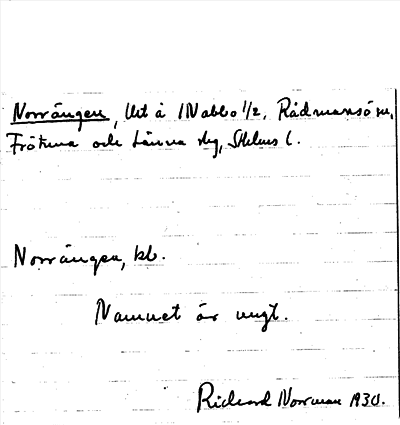 Norrängen, lht å Nabbo 1/2, Rådmansö sn,
Frötuna och Länna skg, Sthlms l.
Norrängen, kb.
Namnet är ungt.
Rickard Norrman 1930.